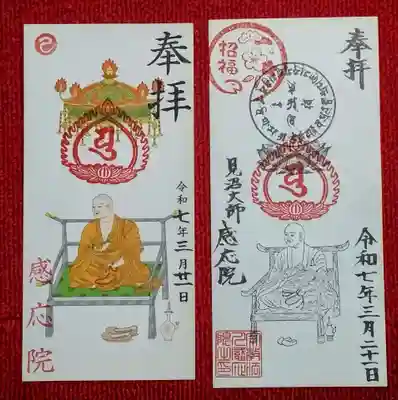 奉拝
令和七年三月廿一日
感応院
奉拝
招福
見沼大師
感応院
令和七年三月二十一日